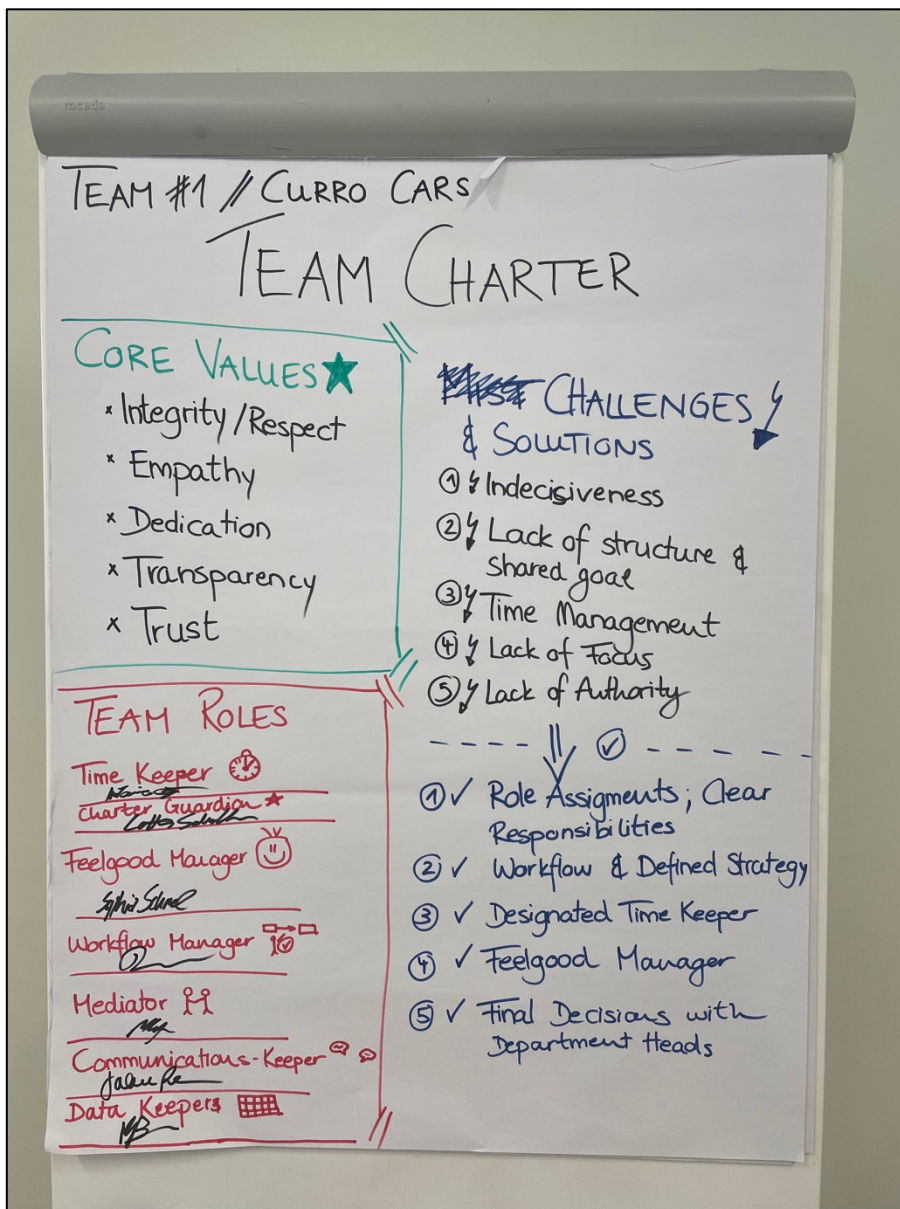 rocada
TEAM #1 // CURRO CARS
TEAM CHARTER
CORE VALUES
x Integrity/Respect
x Empathy
x Dedication
x Transparency
x Trust
TEAM ROLES
Time Keeper
Charter Guardian
Feelgood Manager
Workflow Manager
Mediator
Communications-Keeper
Data Keepers
CHALLENGES
& SOLUTIONS
① Indecisiveness
② Lack of structure &
shared goal
③ Time Management
④ Lack of Focus
⑤ Lack of Authority
① ✓ Role Assigments; Clear
Responsibilities
② ✓ Workflow & Defined Strategy
③ ✓ Designated Time Keeper
④ ✓ Feelgood Manager
⑤ ✓ Final Decisions with
Department Heads